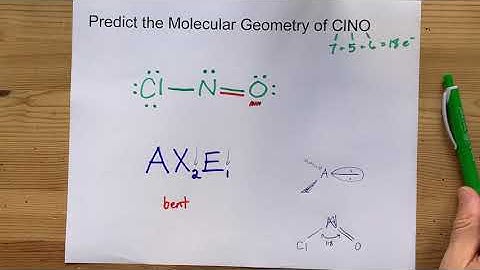 Predict the Molecular Geometry of ClNO
7 + 5 + 6 = 18 e⁻
Cl N O
AX₂E₁
bent
A
N
Cl O